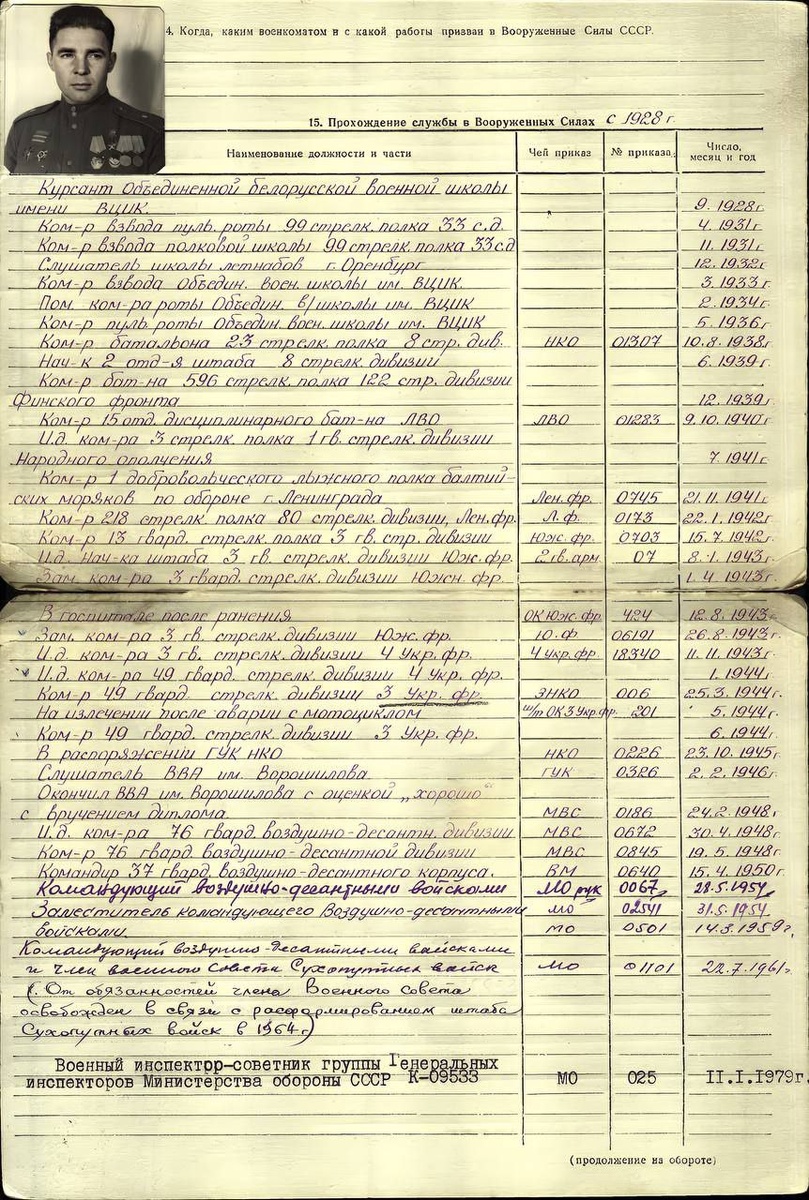 4. Когда, каким военкоматом и с какой работы призван в Вооруженные Силы СССР.
15. Прохождение службы в Вооруженных Силах с 1928 г.
Наименование должности и части Чей приказ № приказа Число, месяц и год
Курсант Объединенной белорусской военной школы
имени ВЦИК. 9. 1928 г.
Ком-р взвода пуль. роты 99 стрелк. полка 33 с.д. 4. 1931 г.
Ком-р взвода полковой школы 99 стрелк. полка 33 с.д 11. 1931 г.
Слушатель школы летнабов г. Оренбург 12. 1932 г.
Ком-р взвода Объедин. воен. школы им. ВЦИК. 3. 1933 г.
Пом. ком-ра роты Объедин. в/школы им. ВЦИК 2. 1934 г.
Ком-р пуль. роты Объедин. воен. школы им. ВЦИК 5. 1936 г.
Ком-р батальона 23 стрелк. полка 8 стр. див. НКО 01307 10. 8. 1938 г.
Нач-к 2 отд-я штаба 8 стрелк. дивизии 6. 1939 г.
Ком-р бат-на 596 стрелк. полка 122 стр. дивизии
Финского фронта 12. 1939 г.
Ком-р 15 отд. дисциплинарного бат-на ЛВО ЛВО 01283 9. 10. 1940 г.
И.д. ком-ра 3 стрелк. полка 1 гв. стрелк. дивизии
Народного ополчения 7. 1941 г.
Ком-р 1 добровольческого лыжного полка балтий-
ских моряков по обороне г. Ленинграда Лен. фр. 0745 21. 11. 1941 г.
Ком-р 218 стрелк. полка 80 стрелк. дивизии, Лен. фр. Л. ф. 0173 22. 1. 1942 г.
Ком-р 13 гвард. стрелк. полка 3 гв. стр. дивизии Юж. фр. 0703 15. 7. 1942 г.
И.д. Нач-ка штаба 3 гв. стрелк. дивизии Юж. фр. 2 гв. арм. 07 8. 1. 1943 г.
Зам. ком-ра 3 гвард. стрелк. дивизии Южн. фр. 1. 4. 1943 г.
В госпитале после ранения ОК Юж. фр. 424 12. 8. 1943 г.
Зам. ком-ра 3 гв. стрелк. дивизии Юж. фр. Ю. ф 06191 26. 8. 1943 г.
И.д. ком-ра 3 гв. стрелк. дивизии 4 Укр. фр. 4 Укр. фр. 18340 11. 11. 1943 г.
И.д. ком-ра 49 гвард. стрелк. дивизии 4 Укр. фр. 1. 1944 г.
Ком-р 49 гвард. стрелк. дивизии 3 Укр. фр. ЗНКО 006 25. 3. 1944 г.
На излечении после аварии с мотоциклом ш/т ОК 3 Укр. фр. 201 5. 1944 г.
Ком-р 49 гвард. стрелк. дивизии 3 Укр. фр. 6. 1944 г.
В распоряжении ГУК НКО НКО 0226 23. 10. 1945 г.
Слушатель ВВА им. Ворошилова ГУК 0326 2. 2. 1946 г.
Окончил ВВА им. Ворошилова с оценкой „хорошо"
с вручением диплома МВС 0186 24. 2. 1948 г.
И.д. ком-ра 76 гвард. воздушно-десантн. дивизии МВС 0672 30. 4. 1948 г.
Ком-р 76 гвард. воздушно-десантной дивизии МВС 0845 19. 5. 1948 г.
Командир 37 гвард. воздушно-десантного корпуса. ВМ 0640 15. 4. 1950 г.
Командующий воздушно-десантными войсками МО рук 0067 28. 5. 1954
Заместитель командующего Воздушно-десантными МО 02541 31. 5. 1954
войсками. МО 0501 14. 3. 1959 г.
Командующий воздушно-десантными войсками
и член военного Совета Сухопутных войск МО 01101 22. 7. 1961 г.
(От обязанностей члена Военного Совета
освобожден в связи с расформированием штаба
Сухопутных войск в 1964 г.)
Военный инспектор-советник группы Генеральных
инспекторов Министерства обороны СССР К-09533 МО 025 II.I.1979г.
(продолжение на обороте)